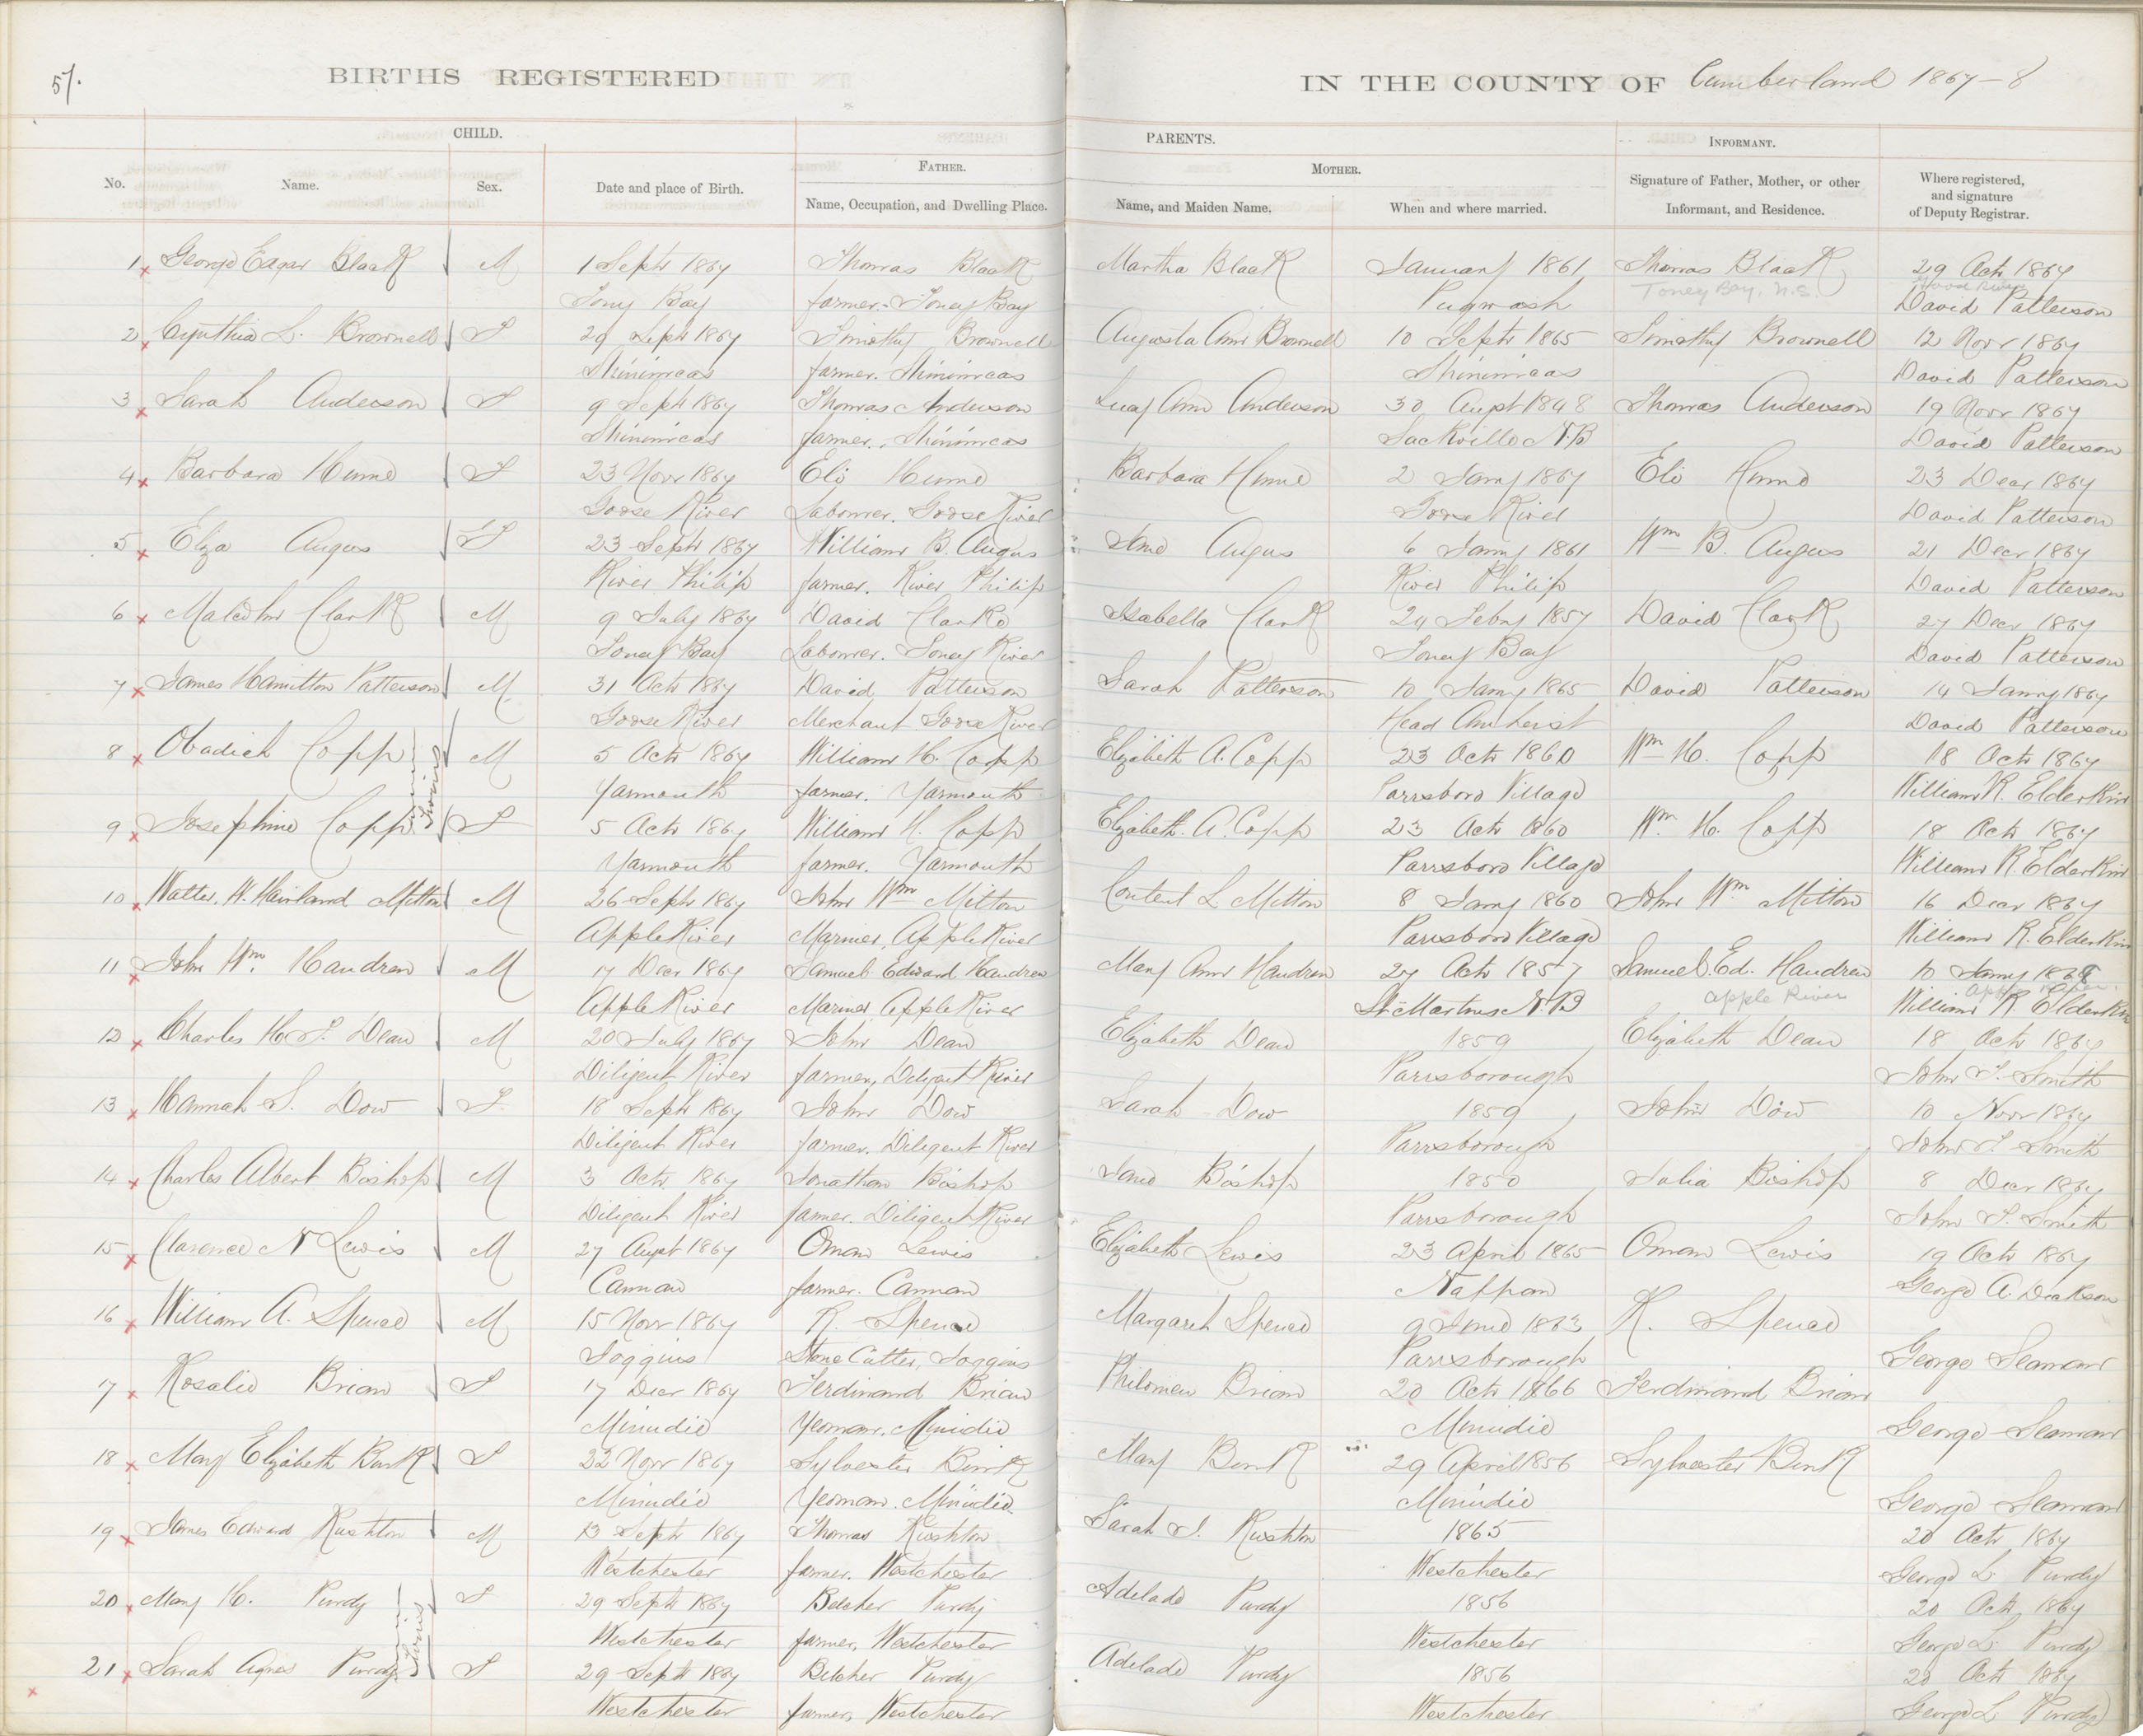 57.
BIRTHS REGISTERED
IN THE COUNTY OF Cumberland 1867-8
CHILD.
PARENTS.
INFORMANT.
No.
Name.
Sex.
Date and place of Birth.
FATHER.
Name, Occupation, and Dwelling Place.
MOTHER.
Name, and Maiden Name.
When and where married.
Signature of Father, Mother, or other
Informant, and Residence.
Where registered,
and signature
of Deputy Registrar.
1 George Eagar Black M 1 Septr 1867 Thomas Black Martha Black January 1861 Thomas Black 29 Octr 1867
Tony Bay farmer. Toney Bay Pugwash Toney Bay, N.S. David Patterson
2 Cynthia L. Brownell F 29 Septr 1867 Timothy Brownell Augusta Ann Brownell 10 Septr 1865 Timothy Brownell 12 Novr 1867
Shinimicas farmer. Shinimicas Shinimicas David Patterson
3 Sarah Anderson F 9 Septr 1867 Thomas Anderson Lucy Ann Anderson 30 Augst 1848 Thomas Anderson 19 Novr 1867
Shinimicas farmer. Shinimicas Sackville N.B David Patterson
4 Barbara Hunnd F 23 Novr 1867 Eli Barbara 2 Jany 1867 Eli 23 Decr 1867
Goose River Labourer. Goose River Goose River David Patterson
5 Eliza Angus F 23 Septr 1867 William B. Angus Jane Angus 6 Jany 1861 Wm B. Angus 21 Decr 1867
River Philip farmer. River Philip River Philip David Patterson
6 Malcolm Clark M 9 July 1867 David Clark Isabella Clark 24 Feby 1857 David Clark 27 Decr 1867
Toney Bay Labourer. Toney River Toney Bay David Patterson
7 James Hamilton Patterson M 31 Octr 1867 David Patterson Sarah Patterson 10 Jany 1865 David Patterson 14 Jany 1867
Goose River Merchant Goose River Head Amherst David Patterson
8 Obadiah Copp M 5 Octr 1867 William H. Copp Elizabeth A. Copp 23 Octr 1860 Wm H. Copp 18 Octr 1867
Twins
Yarmouth farmer. Yarmouth Parrsboro Village William R. Elderkin
9 Josephine Copp F 5 Octr 1867 William H. Copp Elizabeth. A. Copp 23 Octr 1860 Wm H. Copp 18 Octr 1867
Yarmouth farmer. Yarmouth Parrsboro Village William R Elderkin
10 Walter. W. Mitton M 26 Septr 1867 John Wm Mitton Content L. Mitton 8 Jany 1860 John Wm Mitton 16 Decr 1867
Apple River Mariner, Apple River Parrsboro Village William R. Elderkin
11 John Wm. Handren M 17 Decr 1867 Samuel Edward Handren Mary Ann Handren 27 Octr 1857 Samuel. Ed. Handren 10 Jany 1868
Apple River Mariner Apple River St Martins N.B Apple River William R Elderkin
12 Charles H. F. Dean M 20 July 1867 John Dean Elizabeth Dean 1859 Elizabeth Dean 18 Octr 1867
Diligent River farmer, Diligent River Parrsborough John T. Smith
13 Hannah S. Dow F 18 Septr 1867 John Dow Sarah Dow 1859 John Dow 10 Novr 1867
Diligent River farmer. Diligent River Parrsborough John T. Smith
14 Charles Albert Bishop M 3 Octr 1867 Jonathan Bishop Jane Bishop 1850 Julia Bishop 8 Decr 1867
Diligent River farmer. Diligent River Parrsborough John T. Smith
15 Clarence N Lewis M 27 Augst 1867 Oman Lewis Elizabeth Lewis 23 April 1865 Oman Lewis 19 Octr 1867
Cannan farmer. Cannan Nappan George A. Dickson
16 William A. Spence M 15 Novr 1867 R. Spence Margaret Spence 9 June 1863 R. Spence
Joggins Stone Cutter, Joggins Parrsborough George Seaman
17 Rosalie Brian F 17 Decr 1867 Ferdinand Brian Philomen Brian 20 Octr 1866 Ferdinand Brian
Minudie Yeoman. Minudie Minudie George Seaman
18 Mary Elizabeth Burk F 22 Novr 1867 Sylvester Burk Mary Burk 29 April 1856 Sylvester Burk
Minudie Yeoman. Minudie Minudie George Seaman
19 James Edward Rushton M 13 Septr 1867 Thomas Rushton Sarah J. Rushton 1865 20 Octr 1867
Westchester farmer. Westchester Westchester George L. Purdy
20 Mary H. Purdy F 29 Septr 1867 Belcher Purdy Adelade Purdy 1856 20 Octr 1867
Twins
Westchester farmer, Westchester Westchester George L. Purdy
21 Sarah Agnes Purdy F 29 Septr 1867 Belcher Purdy Adelade Purdy 1856 20 Octr 1867
Westchester farmer, Westchester Westchester George L. Purdy